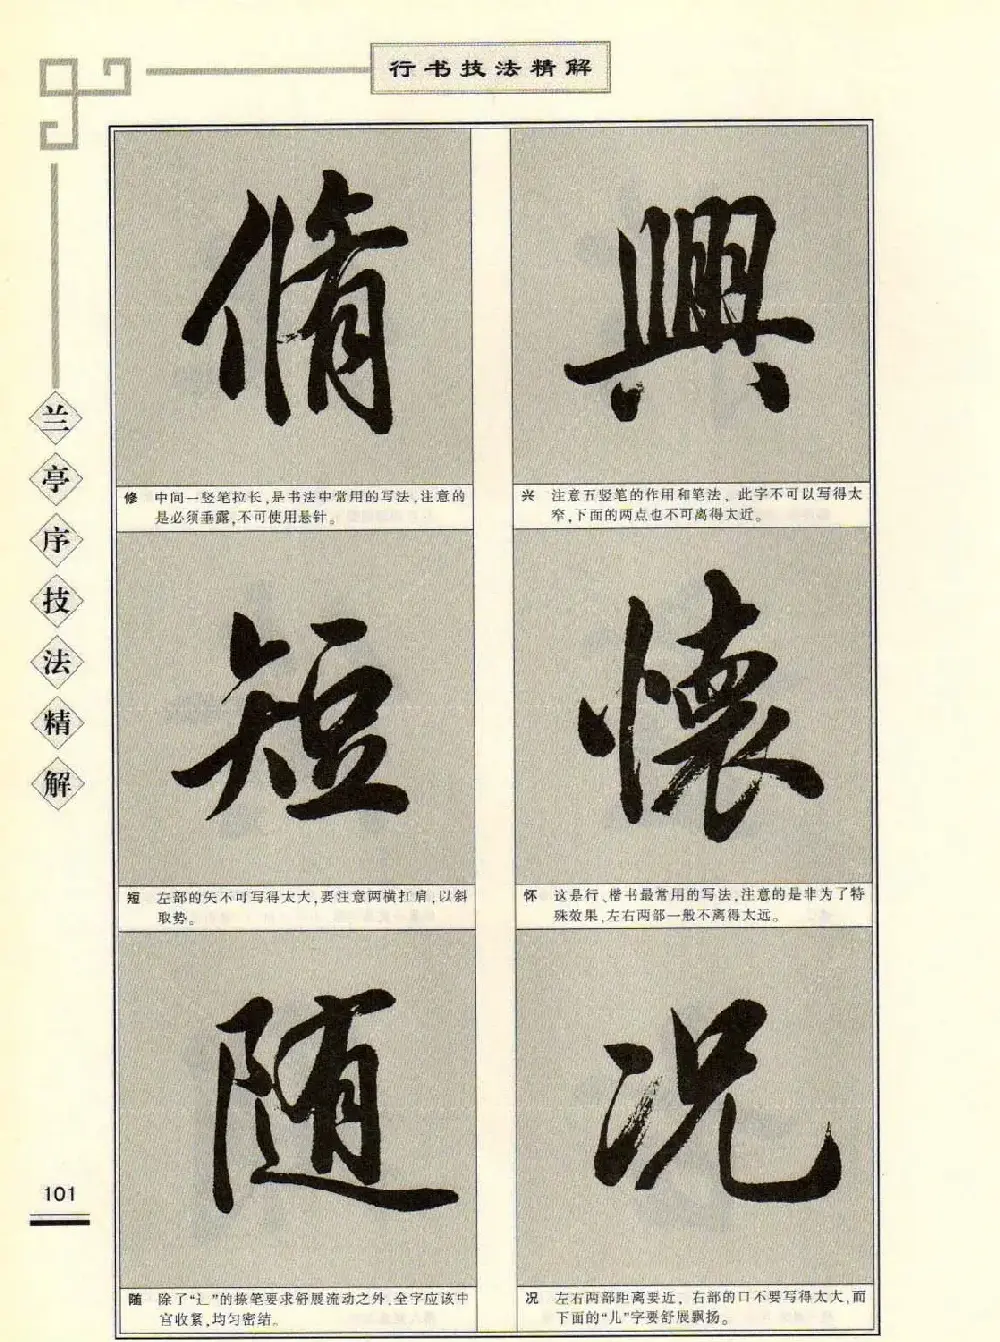 行书技法精解
兰亭序技法精解
脩
興
修 中间一竖笔拉长,是书法中常用的写法,注意的
是必须垂露,不可使用悬针。
兴 注意五竖笔的作用和笔法。此字不可以写得太
窄,下面的两点也不可离得太近。
短
懷
短 左部的矢不可写得太大,要注意两横扛肩,以斜
取势。
怀 这是行、楷书最常用的写法,注意的是非为了特
殊效果,左右两部一般不离得太远。
随
况
随 除了“辶”的捺笔要求舒展流动之外,全字应该中
宫收紧,均匀密结。
况 左右两部距离要近，右部的口不要写得太大,而
下面的“儿”字要舒展飘扬。
101